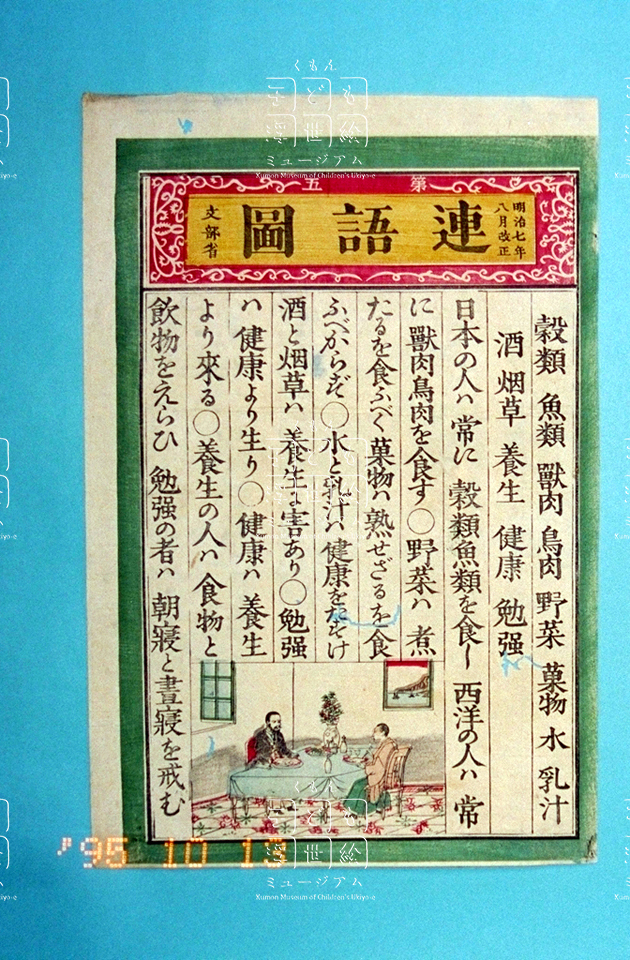 第五
連語圖
明治七年
八月改正
文部省
穀類 魚類 獸肉 鳥肉 野菜 菓物 水 乳汁
酒 烟草 養生 健康 勉强
日本の人ハ 常に 穀類魚類を食し 西洋の人ハ 常
に 獸肉鳥肉を食す〇野菜ハ 煮
たるを食ふべく 菓物ハ 熟せざるを 食
ふべからず〇水と乳汁ハ 健康をたすけ
酒と烟草ハ 養生に害あり〇勉强
ハ 健康より生り〇健康ハ 養生
より來る〇養生の人ハ 食物と
飲物をえらひ 勉强の者ハ 朝寢と晝寢を戒む
くもん
子ども
浮世絵
ミュージアム
Kumon Museum of Children's Ukiyo-e
'95 10 13